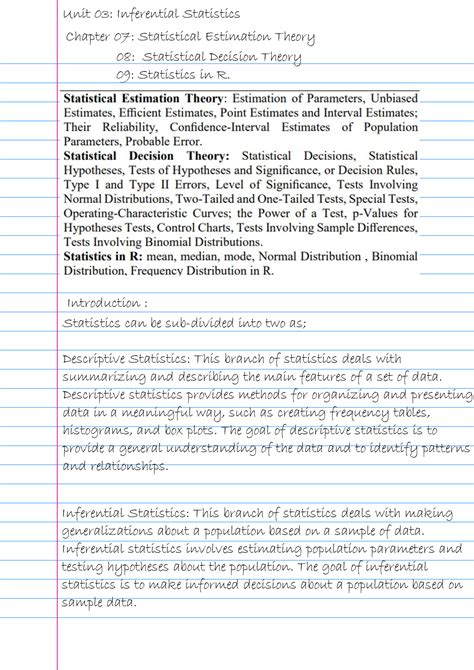 Unit 03: Inferential Statistics
Chapter 07: Statistical Estimation Theory
08: Statistical Decision Theory
09: Statistics in R.
Statistical Estimation Theory: Estimation of Parameters, Unbiased
Estimates, Efficient Estimates, Point Estimates and Interval Estimates;
Their Reliability, Confidence-Interval Estimates of Population
Parameters, Probable Error.
Statistical Decision Theory: Statistical Decisions, Statistical
Hypotheses, Tests of Hypotheses and Significance, or Decision Rules,
Type I and Type II Errors, Level of Significance, Tests Involving
Normal Distributions, Two-Tailed and One-Tailed Tests, Special Tests,
Operating-Characteristic Curves; the Power of a Test, p-Values for
Hypotheses Tests, Control Charts, Tests Involving Sample Differences,
Tests Involving Binomial Distributions.
Statistics in R: mean, median, mode, Normal Distribution , Binomial
Distribution, Frequency Distribution in R.
Introduction :
Statistics can be sub-divided into two as;
Descriptive Statistics: This branch of statistics deals with
summarizing and describing the main features of a set of data.
Descriptive statistics provides methods for organizing and presenting
data in a meaningful way, such as creating frequency tables,
histograms, and box plots. The goal of descriptive statistics is to
provide a general understanding of the data and to identify patterns
and relationships.
Inferential Statistics: This branch of statistics deals with making
generalizations about a population based on a sample of data.
Inferential statistics involves estimating population parameters and
testing hypotheses about the population. The goal of inferential
statistics is to make informed decisions about a population based on
sample data.